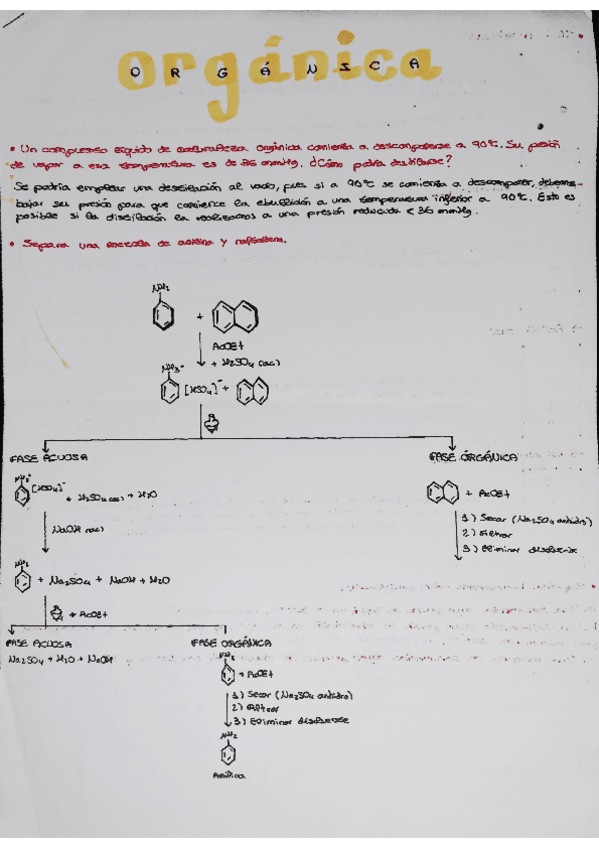 orgánica
ORGÁNICA
• Un compuesto líquido de naturaleza orgánica comienza a descomponerse a 90°C. Su presión
de vapor a esa temperatura es de 36 mmHg. ¿Cómo podría destilarse?
Se podría emplear una destilación al vacío, pues si a 90°C se comienza a descomponer, debemos
bajar su presión para que comience la ebullición a una temperatura inferior a 90°C. Esto es
posible si la destilación la realizamos a una presión reducida < 36 mmHg.
• Separa una mezcla de anilina y naftaleno.
NH2
+
AcOEt
+ H2SO4 (ac)
NH3+
[HSO4]- +
FASE ACUOSA
FASE ÓRGÁNICA
NH3+
[HSO4]- + H2SO4 (ac) + H2O
+ AcOEt
1) Secar (Na2SO4 anhidro)
2) Filtrar
3) Eliminar disolvente
NaOH (ac)
NH2
+ Na2SO4 + NaOH + H2O
+ AcOEt
FASE ACUOSA
FASE ORGÁNICA
Na2SO4 + H2O + NaOH
NH2
+ AcOEt
1) Secar (Na2SO4 anhidro)
2) Filtrar
3) Eliminar disolvente
NH2
Anilina